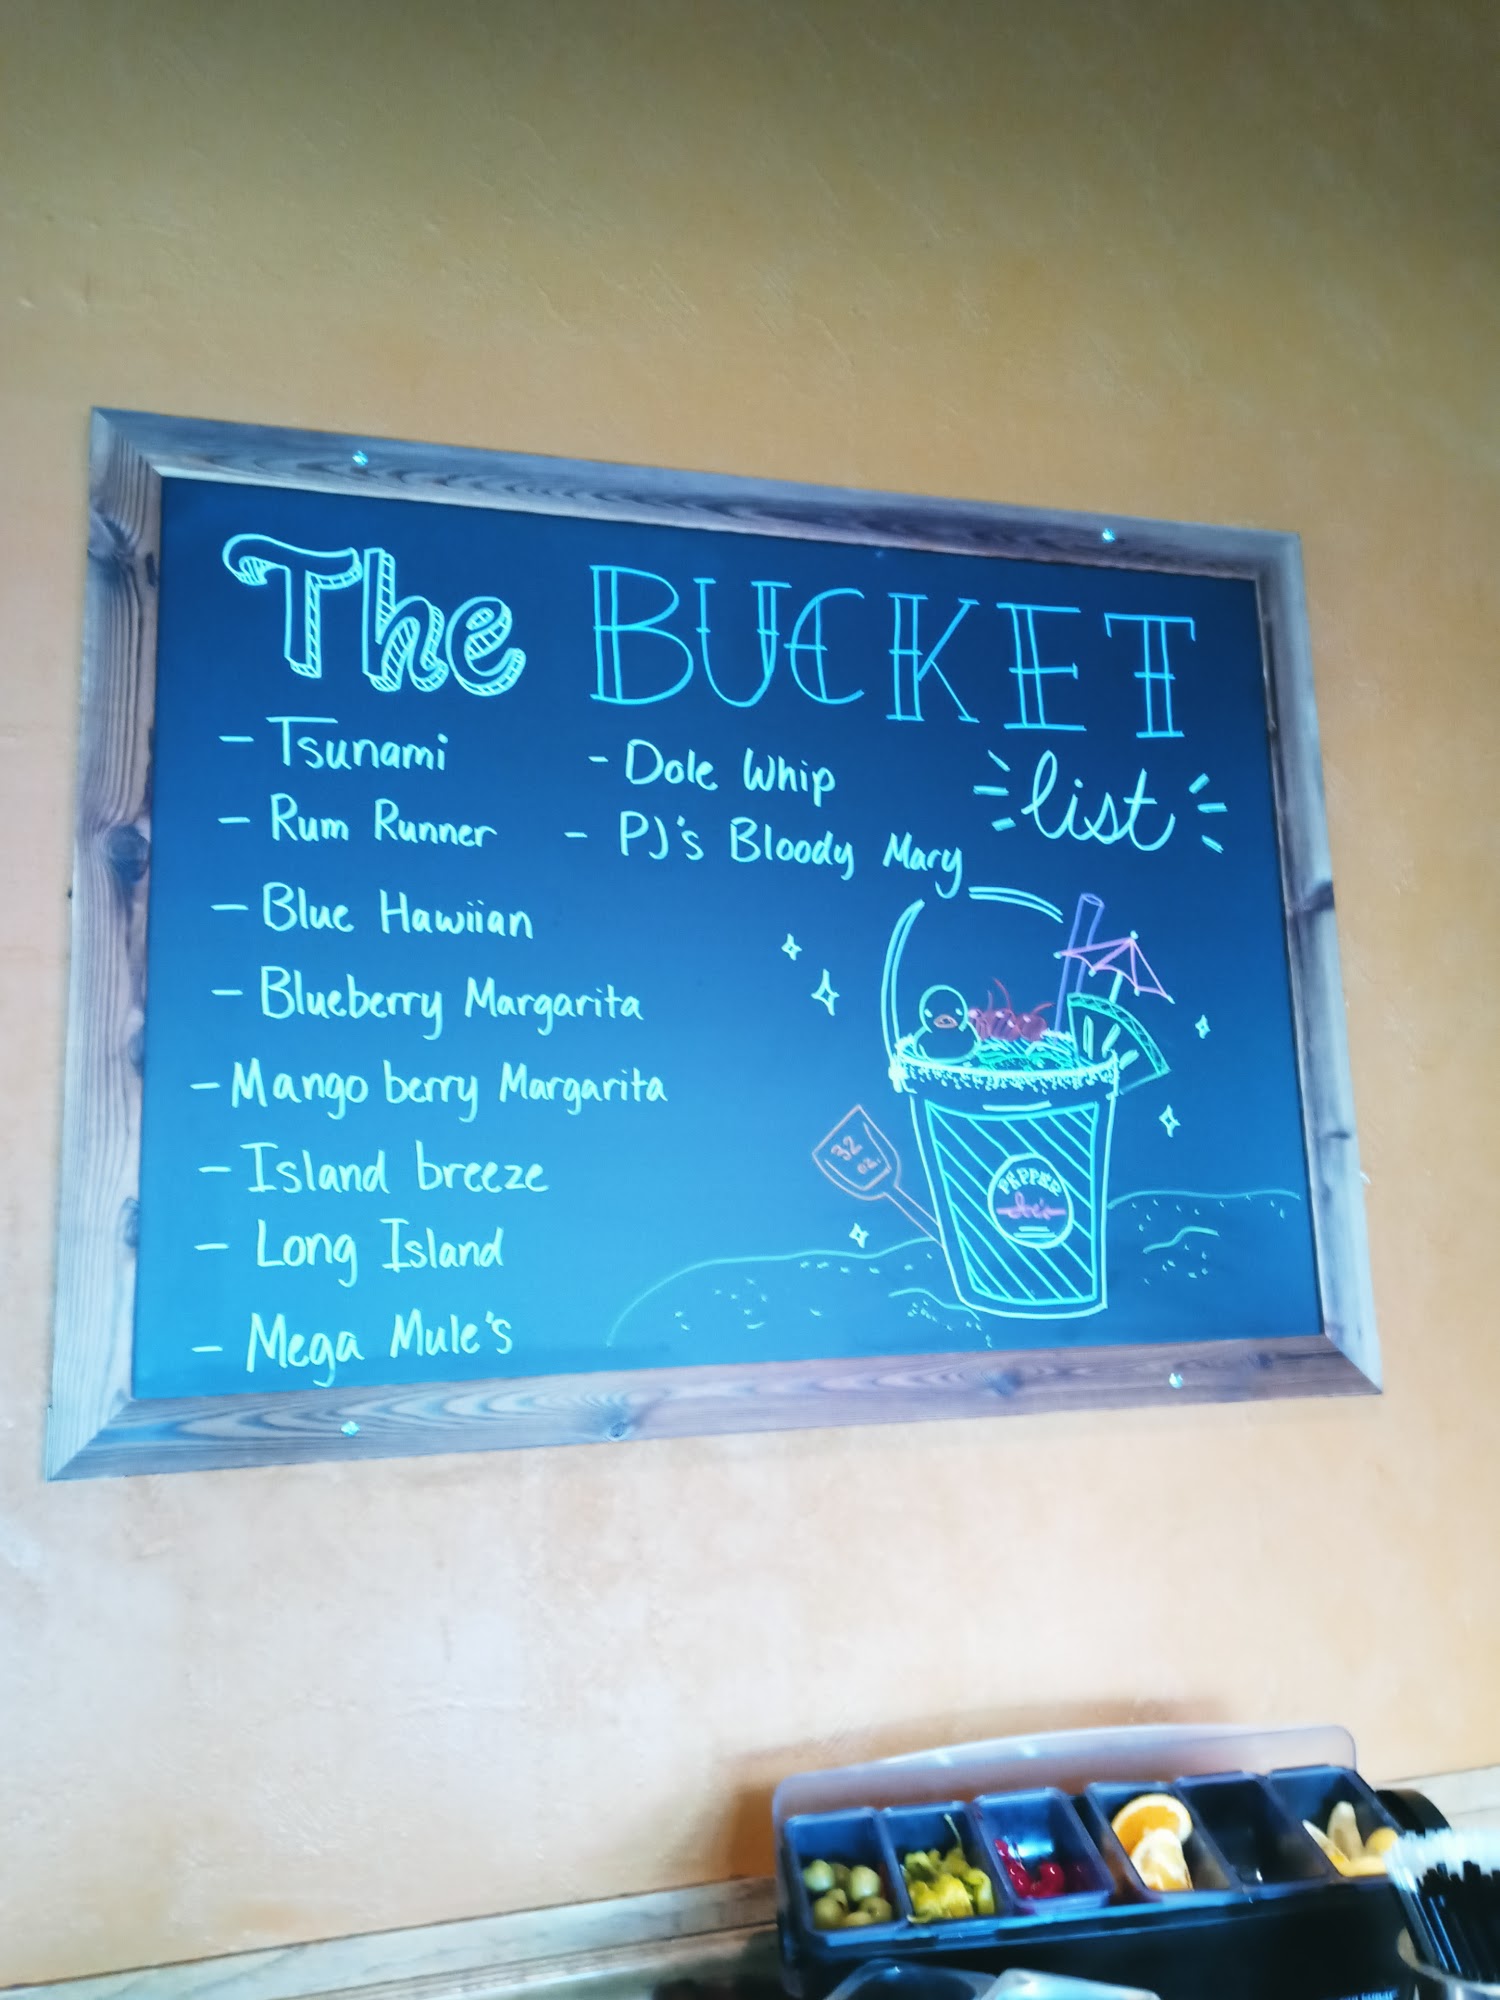 The BUCKET
list
- Tsunami
- Rum Runner
- Blue Hawiian
- Blueberry Margarita
- Mango berry Margarita
- Island breeze
- Long Island
- Mega Mule's
- Dole Whip
- PJ's Bloody Mary
32
oz.
PEPPER
Joe's